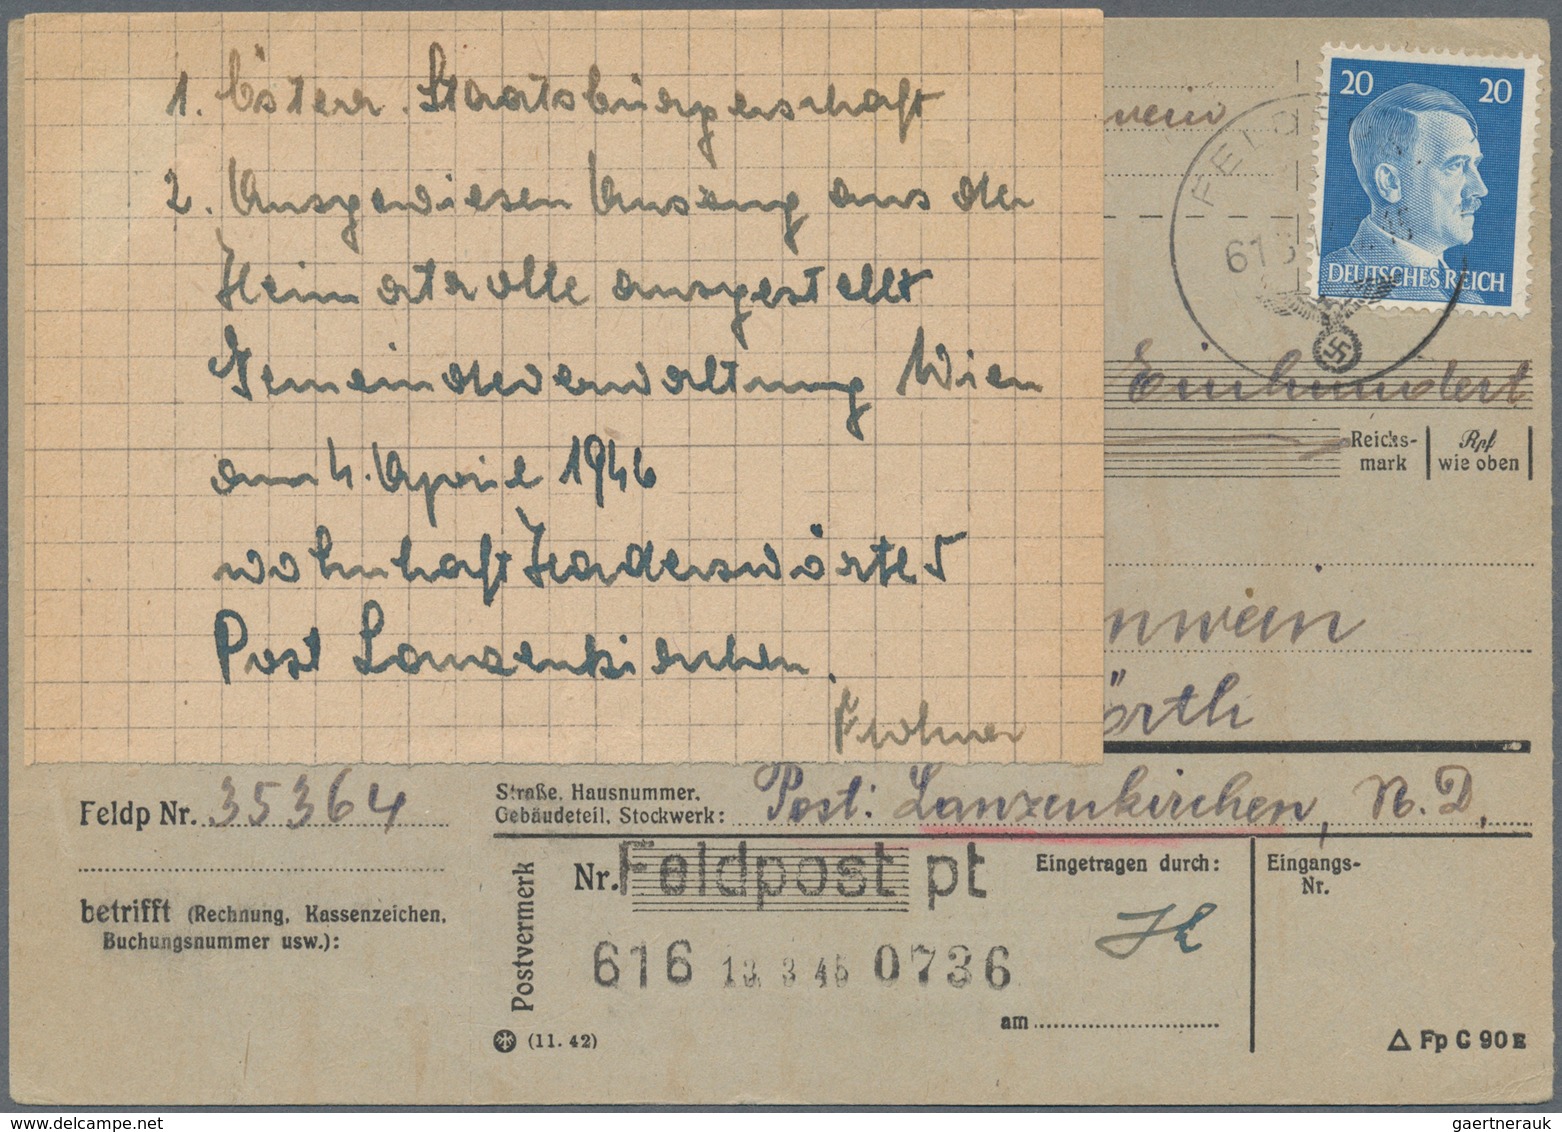 1. Österr. Staatsbürgerschaft
2. Ausgewiesen Auszug aus der
Heimatrolle ausgestellt
Gemeindeverwaltung Wien
am 4. April 1946
wohnhaft Haderswörth 5
Post Lanzenkirchen.
Frohner
20 20
DEUTSCHES REICH
wein
FELDP
616
45
Einhundert
Reichs-
mark
Rpf
wie oben
nwein
örth
Feldp Nr. 35364
Straße, Hausnummer,
Gebäudeteil, Stockwerk: Post: Lanzenkirchen, N. D.
betrifft (Rechnung, Kassenzeichen,
Buchungsnummer usw.):
Postvermerk
Nr. Feldpost pt
616 13. 3. 45 0736
Eingetragen durch:
am
Eingangs-
Nr.
(11. 42)
Fp C 90 E
gaertnerauk@delcampe.net